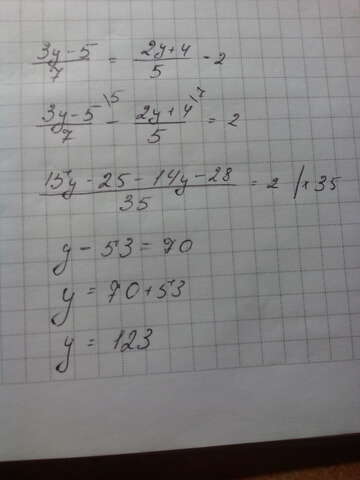 (3y-5)/7 = (2y+4)/5 - 2
(3y-5)/7 \5 - (2y+4)/5 \7 = 2
(15y - 25 - 14y - 28)/35 = 2 /×35
y - 53 = 70
y = 70+53
y = 123